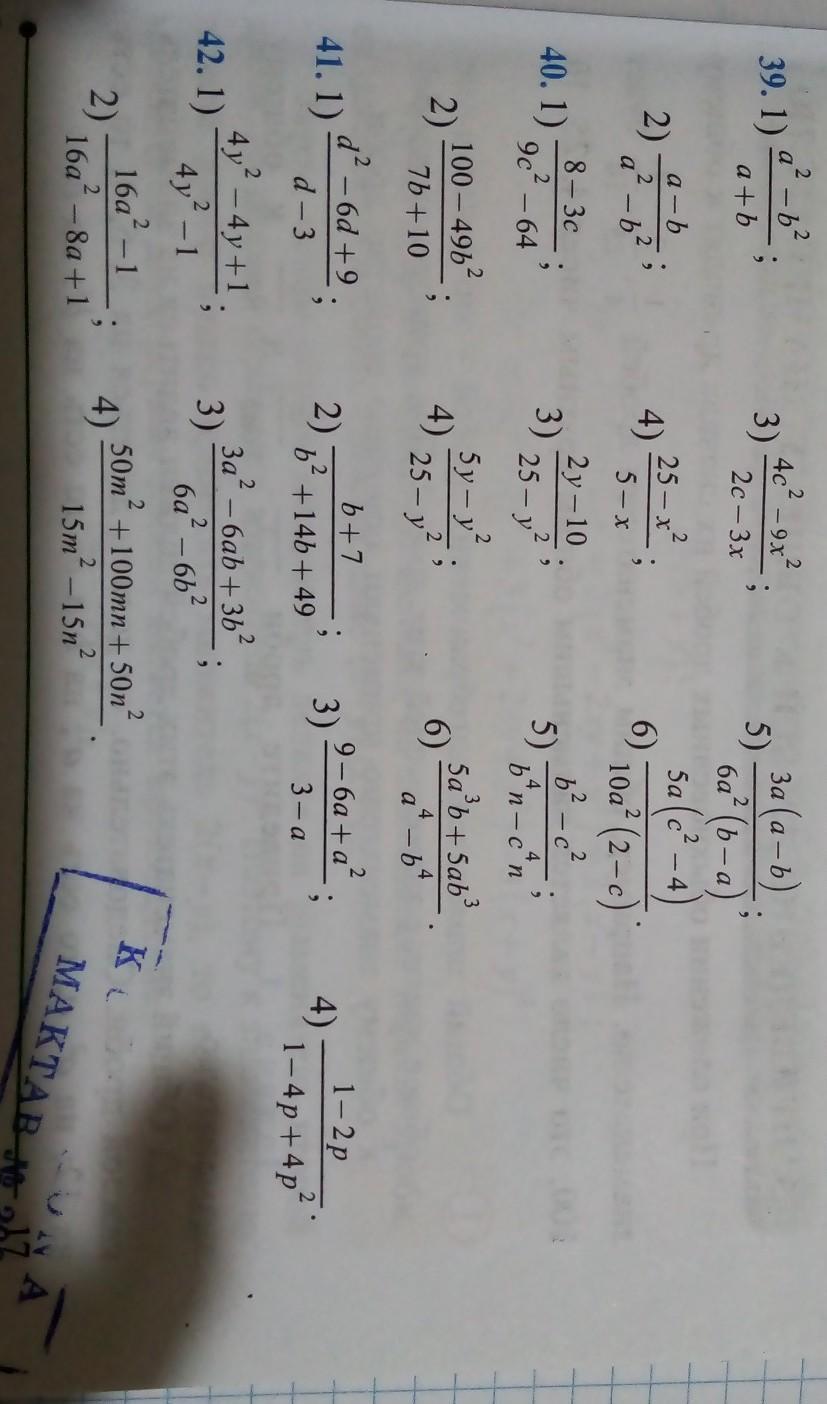 39. 1) (a² – b²)/(a + b); 3) (4c² – 9x²)/(2c – 3x); 5) 3a(a – b)/6a²(b – a);
2) (a – b)/(a² – b²); 4) (25 – x²)/(5 – x); 6) 5a(c² – 4)/10a²(2 – c).
40. 1) (8 – 3c)/(9c² – 64); 3) (2y – 10)/(25 – y²); 5) (b² – c²)/(b⁴n – c⁴n);
2) (100 – 49b²)/(7b + 10); 4) (5y – y²)/(25 – y²); 6) (5a³b + 5ab³)/(a⁴ – b⁴).
41. 1) (d² – 6d + 9)/(d – 3); 2) (b + 7)/(b² + 14b + 49); 3) (9 – 6a + a²)/(3 – a); 4) (1 – 2p)/(1 – 4p + 4p²).
42. 1) (4y² – 4y + 1)/(4y² – 1); 3) (3a² – 6ab + 3b²)/(6a² – 6b²);
2) (16a² – 1)/(16a² – 8a + 1); 4) (50m² + 100mn + 50n²)/(15m² – 15n²).
K
MAKTAB